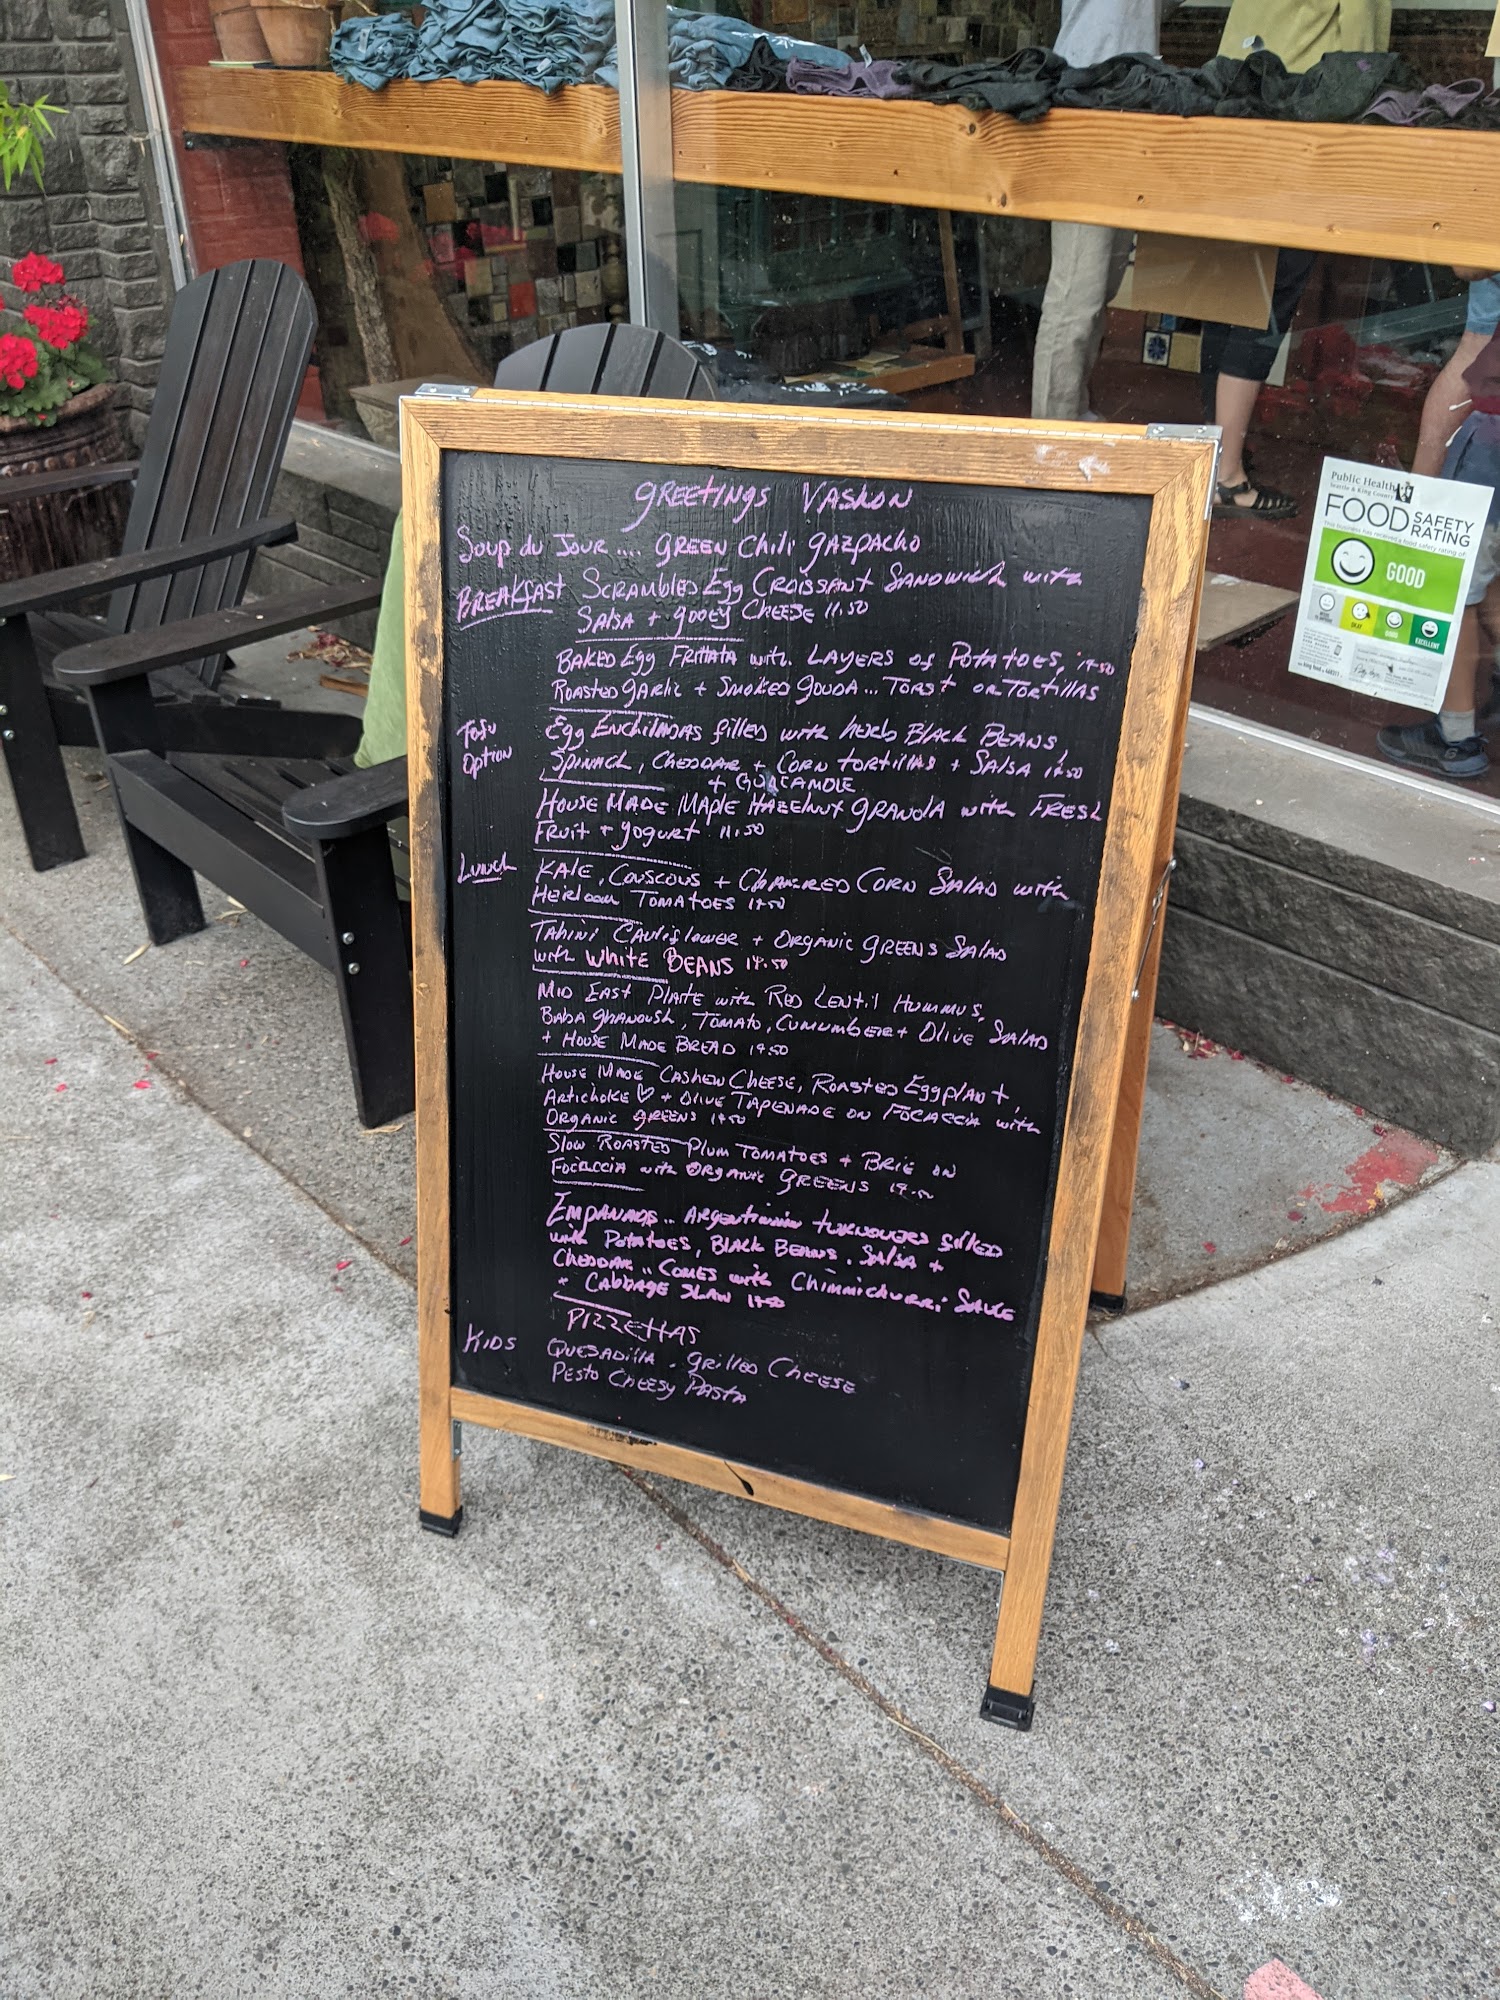 GREETINGS VASHON
Soup du Jour .... GREEN Chili GAZPACHO
BREAKFAST SCRAMBLED EGG CROISSANT SANDWICH with
SALSA + gooey CHEESE 11.50
BAKED Egg FRITTATA with LAYERS of POTATOES, 14.50
ROASTED gARlic + SMOKED gOUDA ... TOAST OR TORTILLAS
Tofu Egg ENCHILADAS filled with herb BLACK BEANS,
Option SPINACH, CHEDDAR + CORN tORtillAS + SALSA 14.50
+ GUACAMOLE
HOUSE MADE MAPLE HAZELNUT GRANOLA with FRESH
FRUIT + yogurt 11.50
Lunch KALE, COUSCOUS + CHARRED CORN SALAD with
HEIRLOOM TOMATOES 14.50
TAHINI CAULIFLOWER + ORGANIC GREENS SALAD
with WHITE BEANS 14.50
MID EAST PLATE with RED LENTIL HUMMUS,
BABA GHANOUSH, TOMATO, CUMUMBER + OLIVE SALAD
+ HOUSE MADE BREAD 14.50
HOUSE MADE CASHEW CHEESE, ROASTED EGGPLANT,
ARTICHOKE ♡ + OLIVE TAPENADE ON FOCACCIA with
ORGANIC GREENS 14.50
SLOW ROASTED PLUM TOMATOES + BRIE ON
FOCACCIA with ORGANIC GREENS 14.50
EMPANADAS .. ARGENTINIAN TURNOVERS filled
with POTATOES, BLACK BEANS, SALSA +
CHEDDAR .. COMES with CHIMMICHURRI SAUCE
+ CABBAGE SLAW 14.50
PIZZETTAS
KIDS QUESADILLA . GRILLED CHEESE
PESTO CHEESY PASTA
Public Health
Seattle & King County
FOOD SAFETY
RATING
This business has received a food safety rating of:
GOOD
OKAY
GOOD
EXCELLENT